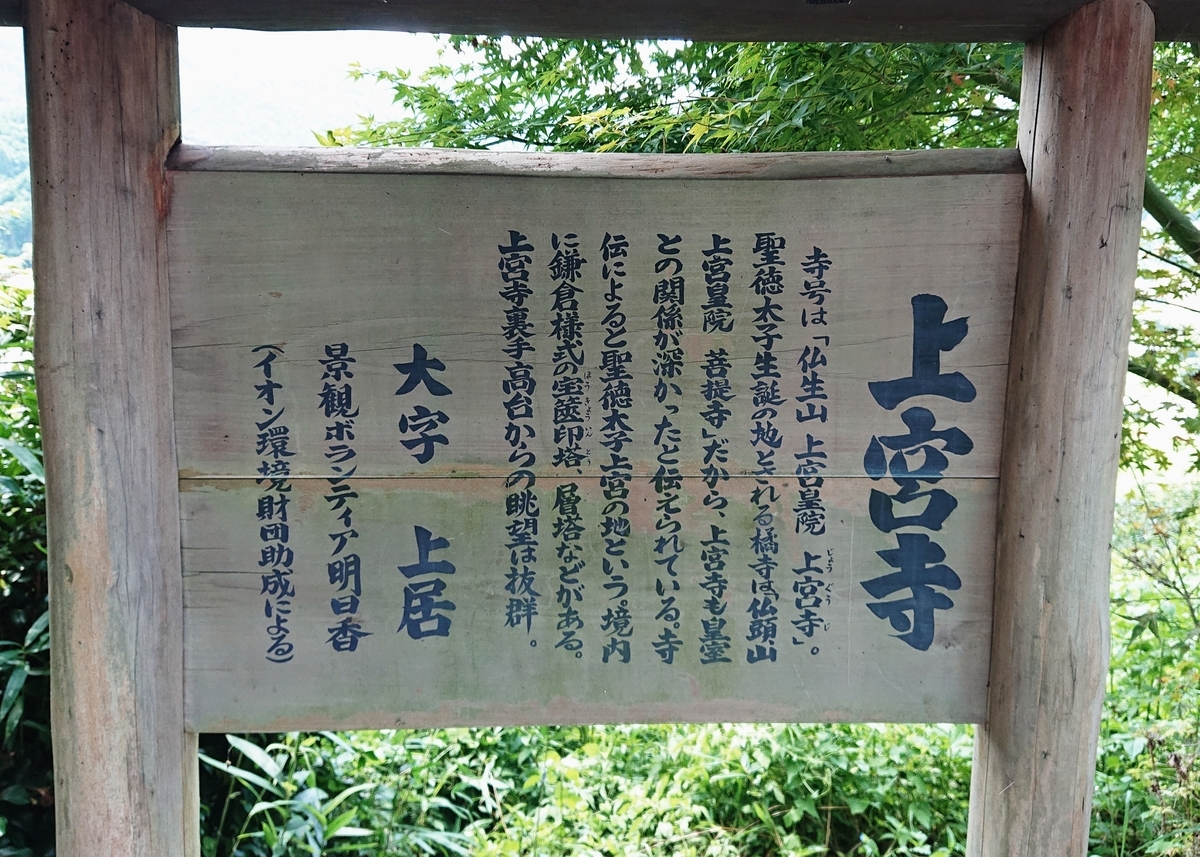 上宮寺
寺号は「仏生山 上宮皇院 上宮寺」。
じょうぐうじ
聖徳太子生誕の地とされる橘寺は「仏頭山
上宮皇院 菩提寺」だから、上宮寺も皇室
との関係が深かったと伝えられている。寺
伝によると聖徳太子上宮の地という。境内
に鎌倉様式の宝篋印塔、層塔などがある。
ほうきょういんとう
上宮寺裏手高台からの眺望は抜群。
大字 上居
景観ボランティア明日香
(イオン環境財団助成による)